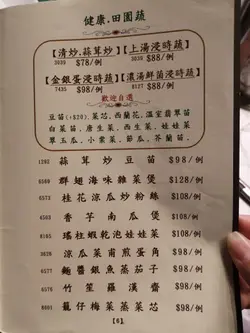 健康.田園蔬
【清炒,蒜茸炒】【上湯浸時蔬】
3039 $78/例 3039 $88/例
【金銀蛋浸時蔬】【濃湯鮮菌浸時蔬】
7435 $98/例 $98/例
歡迎自選
豆苗(+$20)、菜芯、西蘭花、溫室翡翠苗
白菜苗、唐生菜、西生菜、娃娃菜
翠玉瓜、小棠菜、節瓜、芥蘭苗、
1292 蒜茸炒豆苗 $98/例
6589 群翅海味雜菜煲 $128/例
6572 桂花涼瓜炒粉絲 $108/例
6563 香芋南瓜煲 $108/例
8185 瑤柱蝦乾泡娃娃菜 $108/例
3828 涼瓜菜甫煎蛋角 $128/例
6577 麵醬銀魚蒸茄子 $98/例
6576 竹笙羅漢齋 $98/例
8801 籠仔梅菜蒸菜芯 $98/例
【6】